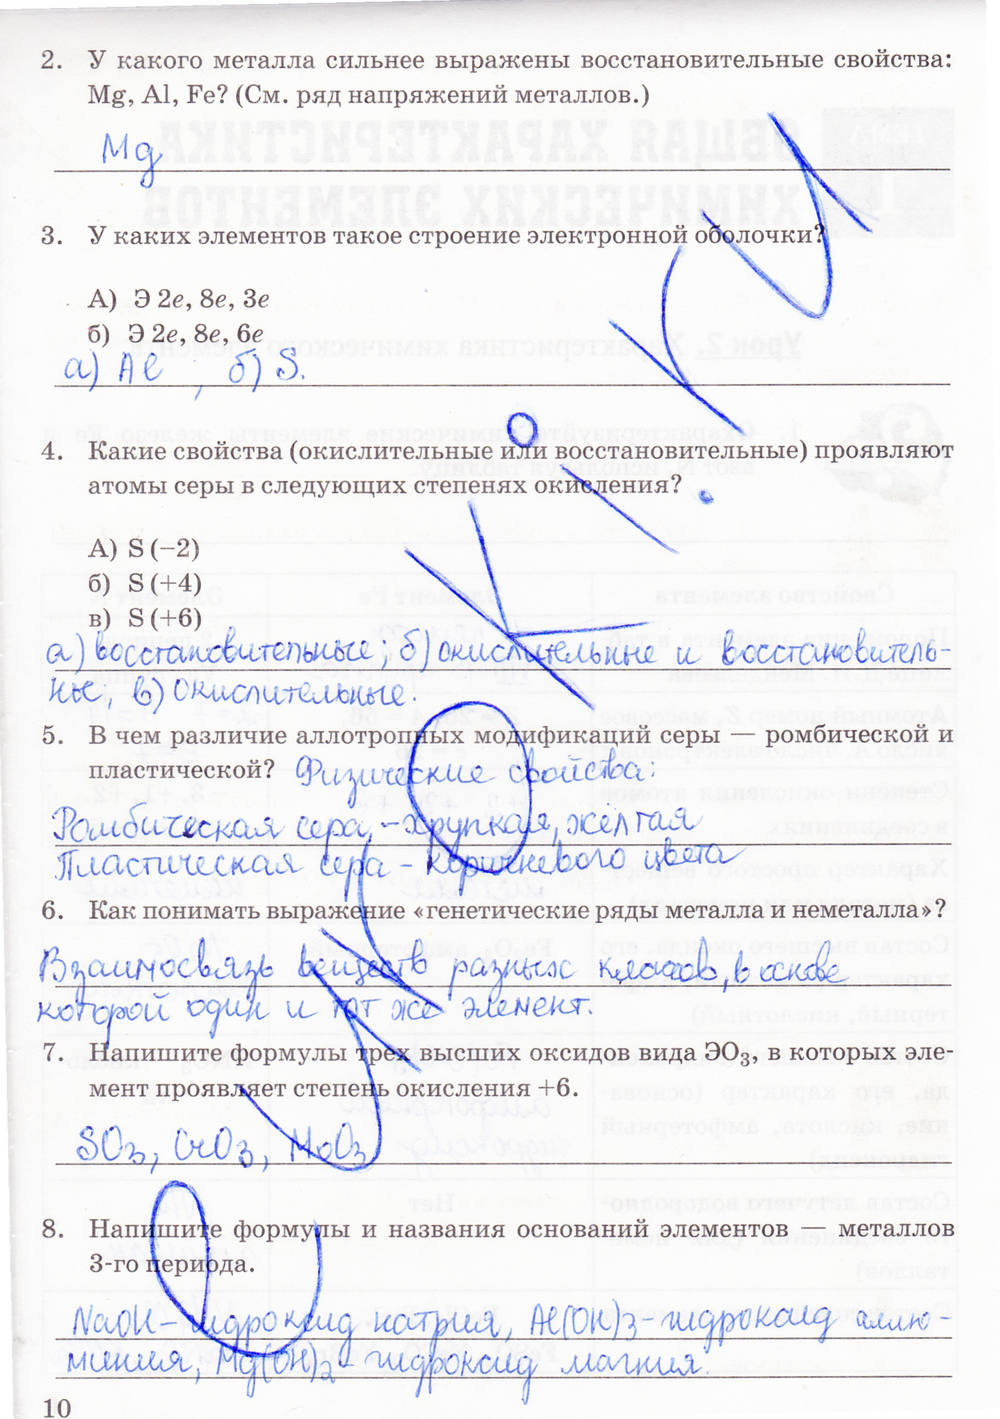 2. У какого металла сильнее выражены восстановительные свойства:
Mg, Al, Fe? (См. ряд напряжений металлов.)
Mg
3. У каких элементов такое строение электронной оболочки?
А) Э 2е, 8е, 3е
б) Э 2е, 8е, 6е
а) Al ; б) S.
4. Какие свойства (окислительные или восстановительные) проявляют
атомы серы в следующих степенях окисления?
А) S (−2)
б) S (+4)
в) S (+6)
а) восстановительные; б) окислительные и восстановитель-
ные; в) окислительные.
5. В чем различие аллотропных модификаций серы — ромбической и
пластической? Физические свойства:
Ромбическая сера – хрупкая, жёлтая
Пластическая сера – коричневого цвета
6. Как понимать выражение «генетические ряды металла и неметалла»?
Взаимосвязь веществ разных классов, в основе
которой один и тот же элемент.
7. Напишите формулы трех высших оксидов вида ЭО₃, в которых эле-
мент проявляет степень окисления +6.
SO₃, CrO₃, MoO₃
8. Напишите формулы и названия оснований элементов — металлов
3-го периода.
NaOH – гидроксид натрия, Al(OH)₃ – гидроксид аллю-
миния, Mg(OH)₂ – гидроксид магния.
10